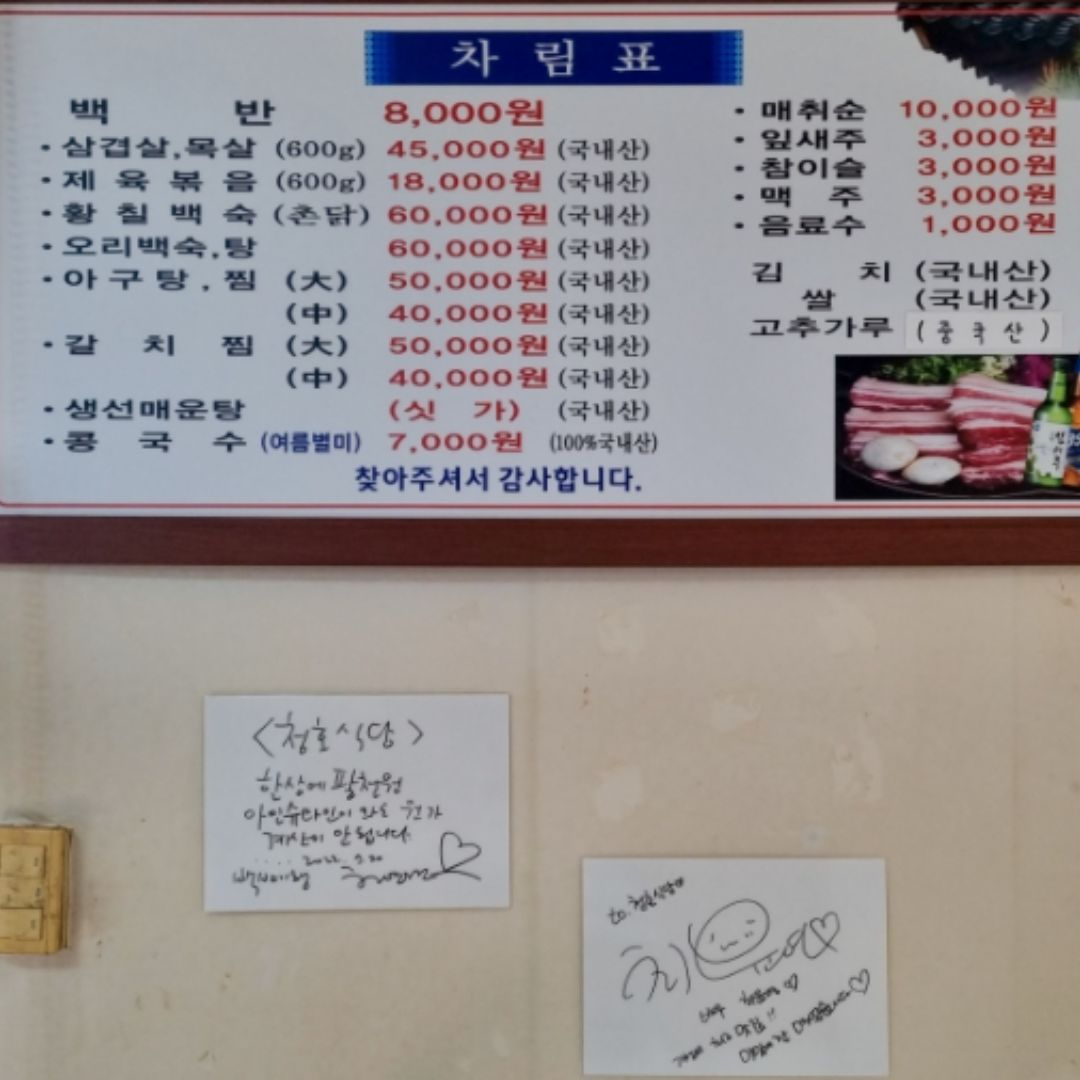 차림표
백반 8,000원
· 삼겹살,목살 (600g) 45,000원 (국내산)
· 제육볶음 (600g) 18,000원 (국내산)
· 황칠백숙 (촌닭) 60,000원 (국내산)
· 오리백숙,탕 60,000원 (국내산)
· 아구탕,찜 (大) 50,000원 (국내산)
(中) 40,000원 (국내산)
· 갈치찜 (大) 50,000원 (국내산)
(中) 40,000원 (국내산)
· 생선매운탕 (싯가) (국내산)
· 콩국수 (여름별미) 7,000원 (100%국내산)
찾아주셔서 감사합니다.
· 매취순 10,000원
· 잎새주 3,000원
· 참이슬 3,000원
· 맥주 3,000원
· 음료수 1,000원
김치 (국내산)
쌀 (국내산)
고추가루 (중국산)
<청호식당>
한상에 팔천원
아인슈타인이 와도 원가
계산이 안됩니다.
백반기행
to. 청호식당